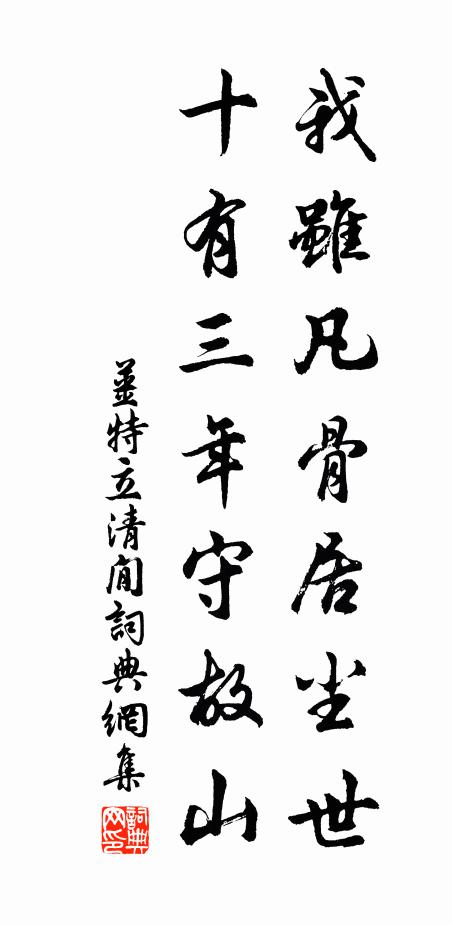 我雖凡骨居尘世
十有三年守故山
姜特立清閒詞典網集
詞典网印